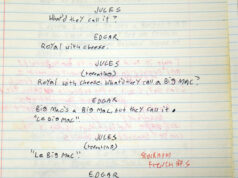 JULES
What'd they call it?
EDGAR
Royal with cheese.
JULES
(repeating)
Royal with cheese. What'd they call a Big Mac?
EDGAR
Big Mac's a Big Mac, but they call it
"Le Big Mac".
JULES
(repeating)
"Le Big Mac"
EDGAR